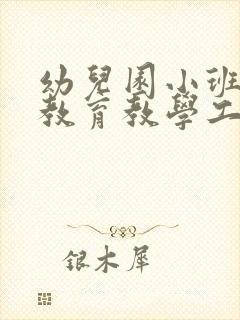 幼兒園小班
教育教學工
銀木犀